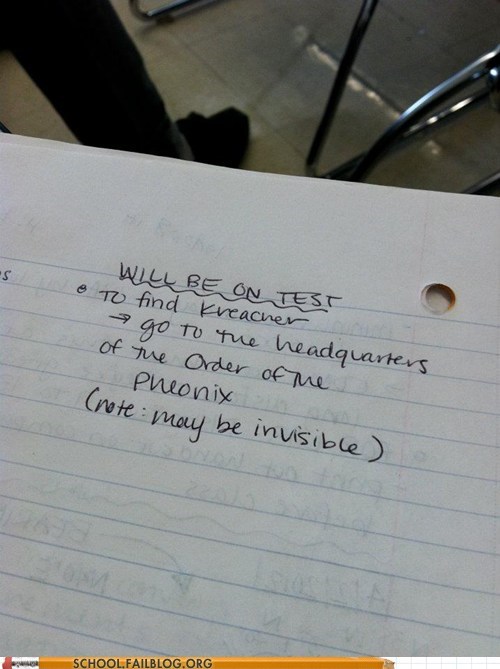 WILL BE ON TEST
• To find Kreacher
→ go to the headquarters
of the Order of the
Pheonix
(note: may be invisible)
SCHOOL.FAILBLOG.ORG